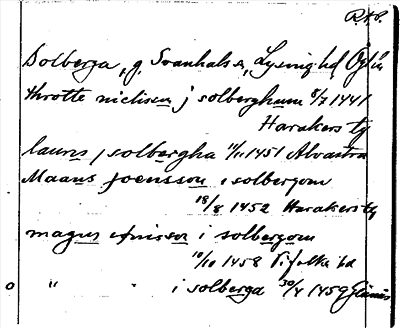 R.A.P.
Solberga, g. Svanhals sn, Lysing hd Ög län
throtte niclisson j solberghum 8/7 1441
Harakers tg
lauris j solbergha 11/11 1451 Alvastra
Maans joensson i solbergom
18/8 1452 Harakers tg
magns i solbergom
10/10 1458 Vifolka hd
" " i solberga 30/4 1459